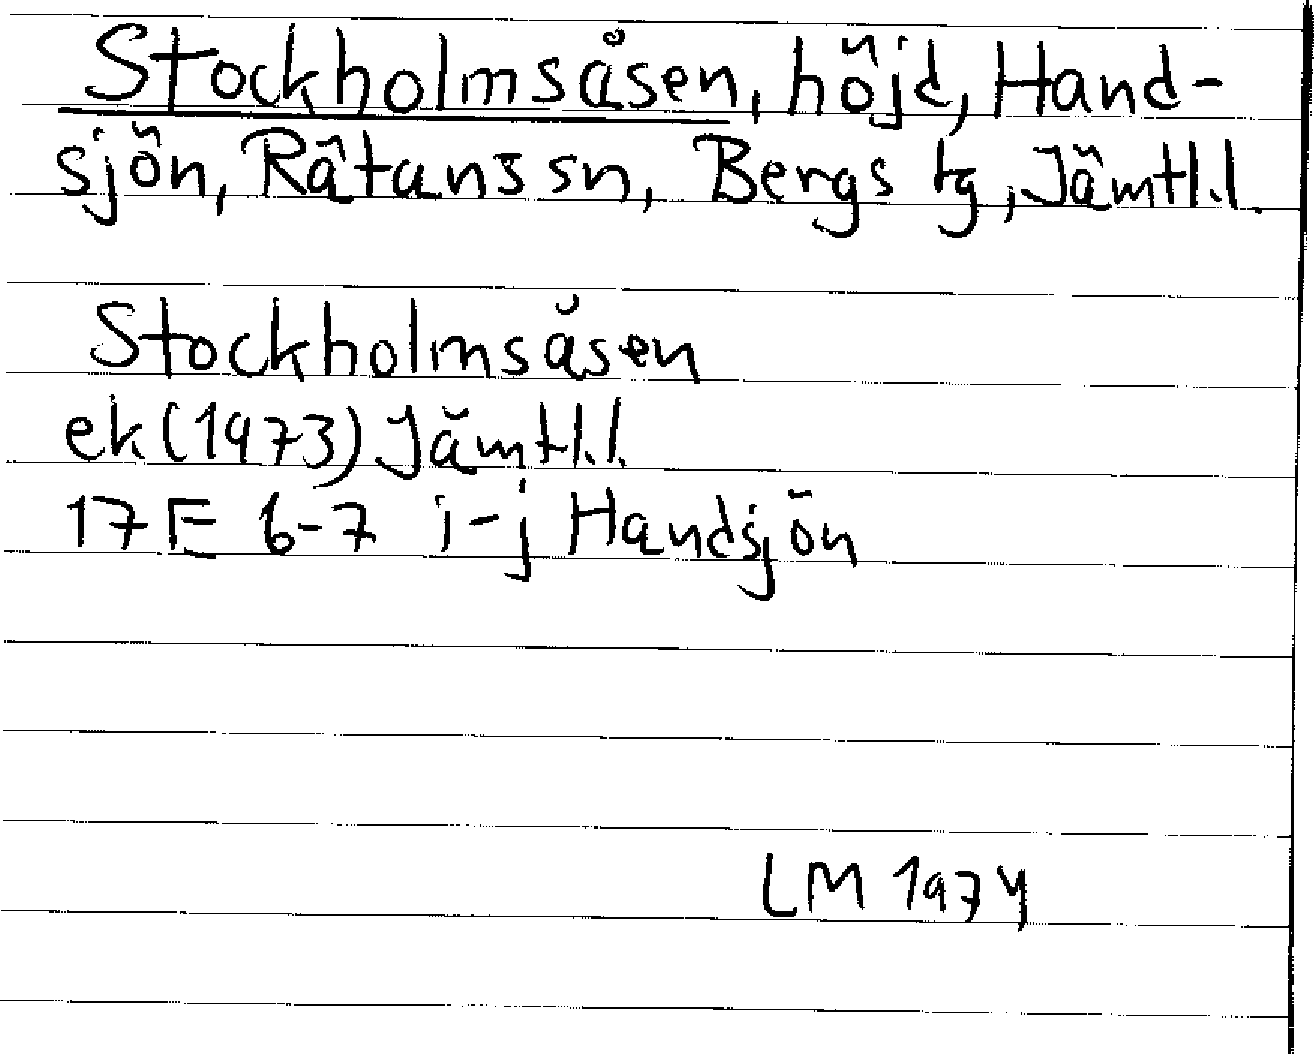 Stockholmsåsen, höjd, Hand-
sjön, Råtans sn, Bergs tg, Jämtl.l.
Stockholmsåsen
ek (1973) Jämtl.l.
17E 6-7 i-j Handsjön
LM 1974